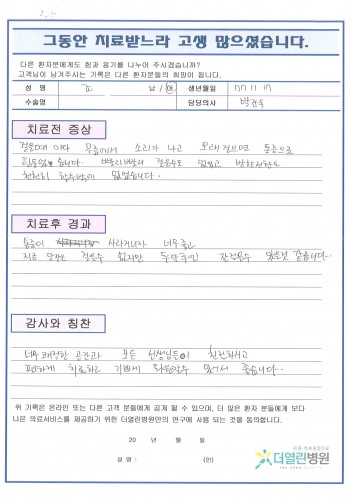 그동안 치료받느라 고생 많으셨습니다.
다른 환자분에게도 힘과 용기를 나누어 주시겠습니까?
고객님이 남겨주시는 기록은 다른 환자분들의 희망이 됩니다.
성 명 남 / 여 생년월일
수술명 담당의사
치료전 증상
걸을때 마다 무릎에서 소리가 나고 오래 걸으면 통증으로
힘들었습니다. 빨리빨리 걸을수도 없었고 방향전환도
천천히 할수밖에 없었습니다.
치료후 경과
통증이 사라지니까 너무 좋고
지금 당장은 걸을수 없지만 잘걸을수 있을것 같습니다.
감사와 칭찬
너무 쾌적한 공간과 모든 선생님들이 친절하시고
편하게 치료하고 기쁘게 있어서 좋습니다.
위 기록은 온라인 또는 다른 고객 분들에게 공개 될 수 있으며, 더 많은 환자 분들에게 보다
나은 의료서비스를 제공하기 위한 더열린병원만의 연구에 사용 되는 것을 동의합니다.
20 년 월 일
성 명 : (인)
더열린병원